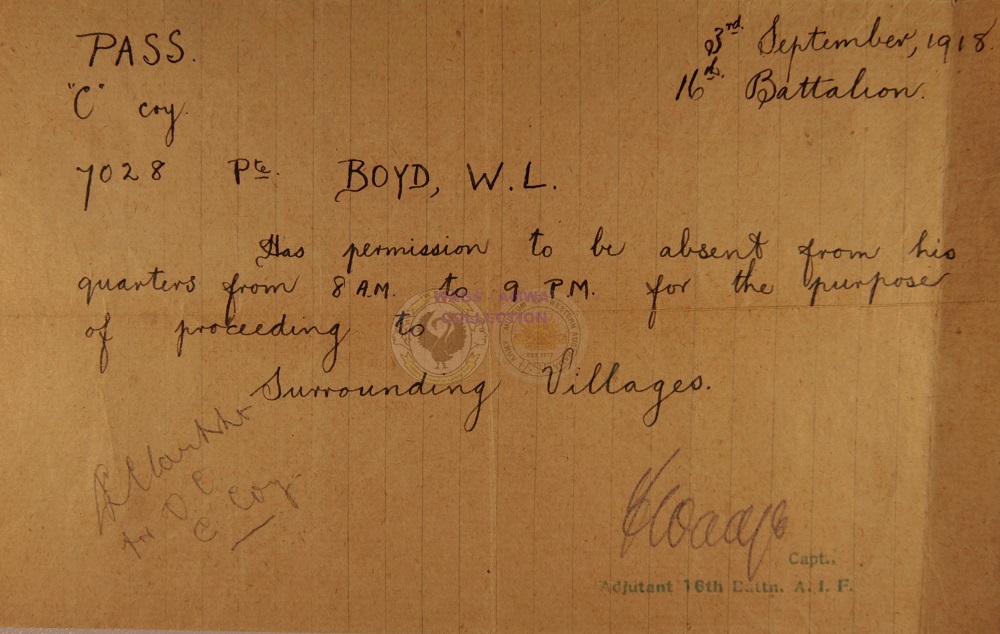 PASS.
3rd. September, 1918.
"C" coy.
16th. Battalion.
7028 Pte. BOYD, W.L.
Has permission to be absent from his
quarters from 8 A.M. to 9 P.M. for the purpose
of proceeding to
Surrounding Villages.
WAGS AMWA
COLLECTION
for O C
C Coy
Capt.,
Adjutant 16th Battn. A. I. F.